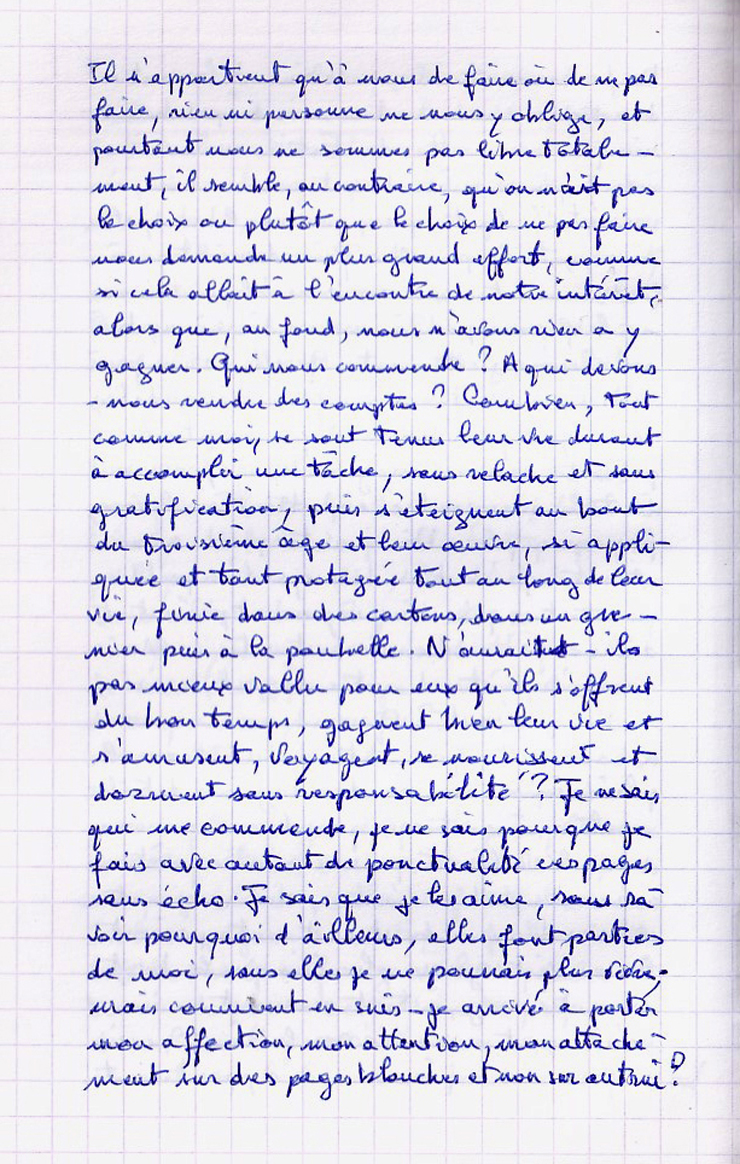 Il n'appartient qu'à nous de faire où de ne pas
faire, rien ni personne ne nous y oblige, et
pourtant nous ne sommes pas libre totale-
ment, il semble, au contraire, qu'on n'ait pas
le choix ou plutôt que le choix de ne pas faire
nous demande un plus grand effort, comme
si cela allait à l'encontre de notre intérêt,
alors que, au fond, nous n'avons rien a y
gagner. Qui nous commende ? A qui devons
-nous rendre des comptes ? Combien, tout
comme moi, se sont tenus leur vie durant
à accomplir une tâche, sans relache et sans
gratification, puis s'éteignent au bout
du troisième âge et leur œuvre, si appli-
quée et tant protégée tout au long de leur
vie, finie dans des cartons, dans un gre-
nier puis à la poubelle. N'aurait - ils
pas mieux vallu pour eux qu'ils s'offrent
du bon temps, gagnent bien leur vie et
s'amusent, voyagent, se nourissent et
dorment sans responsabilité ? Je ne sais
qui me commende, je ne sais pourque je
fais avec autant de ponctualité ces pages
sans écho. Je sais que je les aime, sans sa
voir pourquoi d'ailleurs, elles font parties
de moi, sans elles je ne pourrais plus vivre,
mais comment en suis-je arrivé à porter
mon affection, mon attention, mon attache-
ment sur des pages blanches et non sur autrui ?